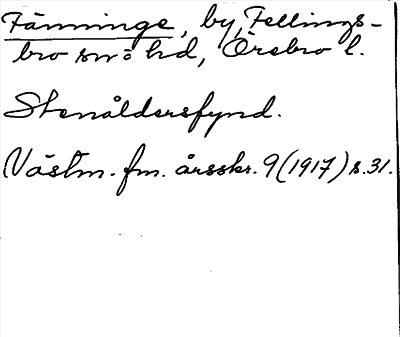 Fänninge, by, Fellings-
bro sn o hd, Örebro l.
Stenåldersfynd.
Västm. fm. årsskr. 9 (1917) s. 31.